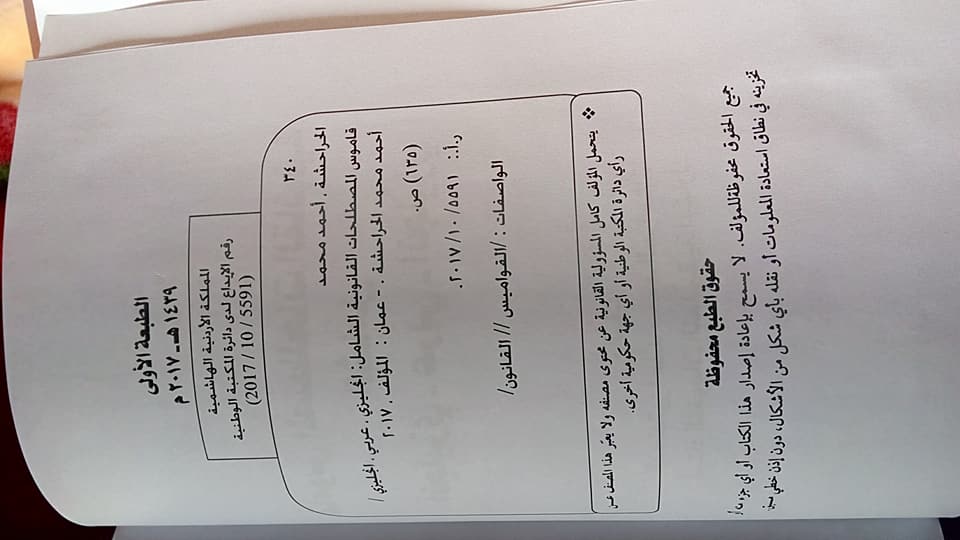 الطبعة الأولى
١٤٣٩ هـ - ٢٠١٧ م
المملكة الأردنية الهاشمية
رقم الإيداع لدى دائرة المكتبة الوطنية
(2017 / 10 / 5591)
٣٤٠
الحراحشة ، أحمد محمد
قاموس المصطلحات القانونية الشامل: إنجليزي . عربي . إنجليزي/
أحمد محمد الحراحشة . - عمان : المؤلف ، ٢٠١٧
(٦٣٥) ص.
ر.أ.: ٢٠١٧/١٠/٥٥٩١.
الواصفات : /القواميس // القانون/
❖ يتحمل المؤلف كامل المسؤولية القانونية عن محتوى مصنفه ولا يعبّر هذا المصنف عن
رأي دائرة المكتبة الوطنية أو أي جهة حكومية أخرى.
حقوق الطبع محفوظة
جميع الحقوق محفوظة للمؤلف. لا يسمح بإعادة إصدار هذا الكتاب أو أي جزء
تخزينه في نطاق استعادة المعلومات أو نقله بأي شكل من الأشكال، دون إذن خطي